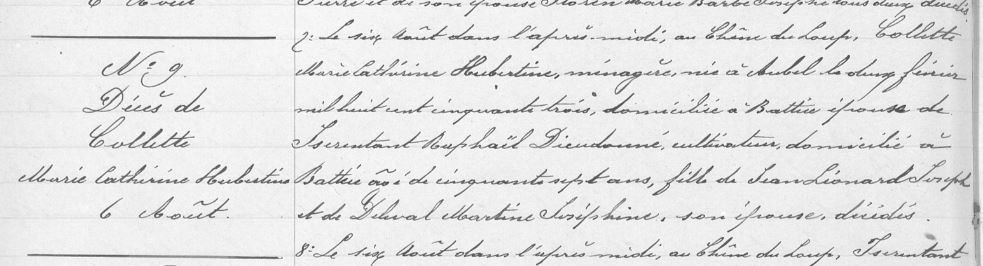 6 Août
Pierre et de son épouse Florin Marie Barbe Josèphe tous deux décédés.
7: Le six Août dans l'après-midi, au Chêne du Loup, Collette
Nº 9.
Décès de
Collette
Marie Cathérine Hubertine
6 Août.
Marie Cathérine Hubertine, ménagère, née à Aubel le deux février
mil huit cent cinquante trois, domiciliée à Battice épouse de
Iserentant Raphaël Dieudonné, cultivateur, domicilié à
Battice âgé de cinquante sept ans, fille de Jean Léonard Joseph
et de Delval Martine Joséphine, son épouse, décédés.
8: Le six Août dans l'après midi, au Chêne du Loup, Iserentant